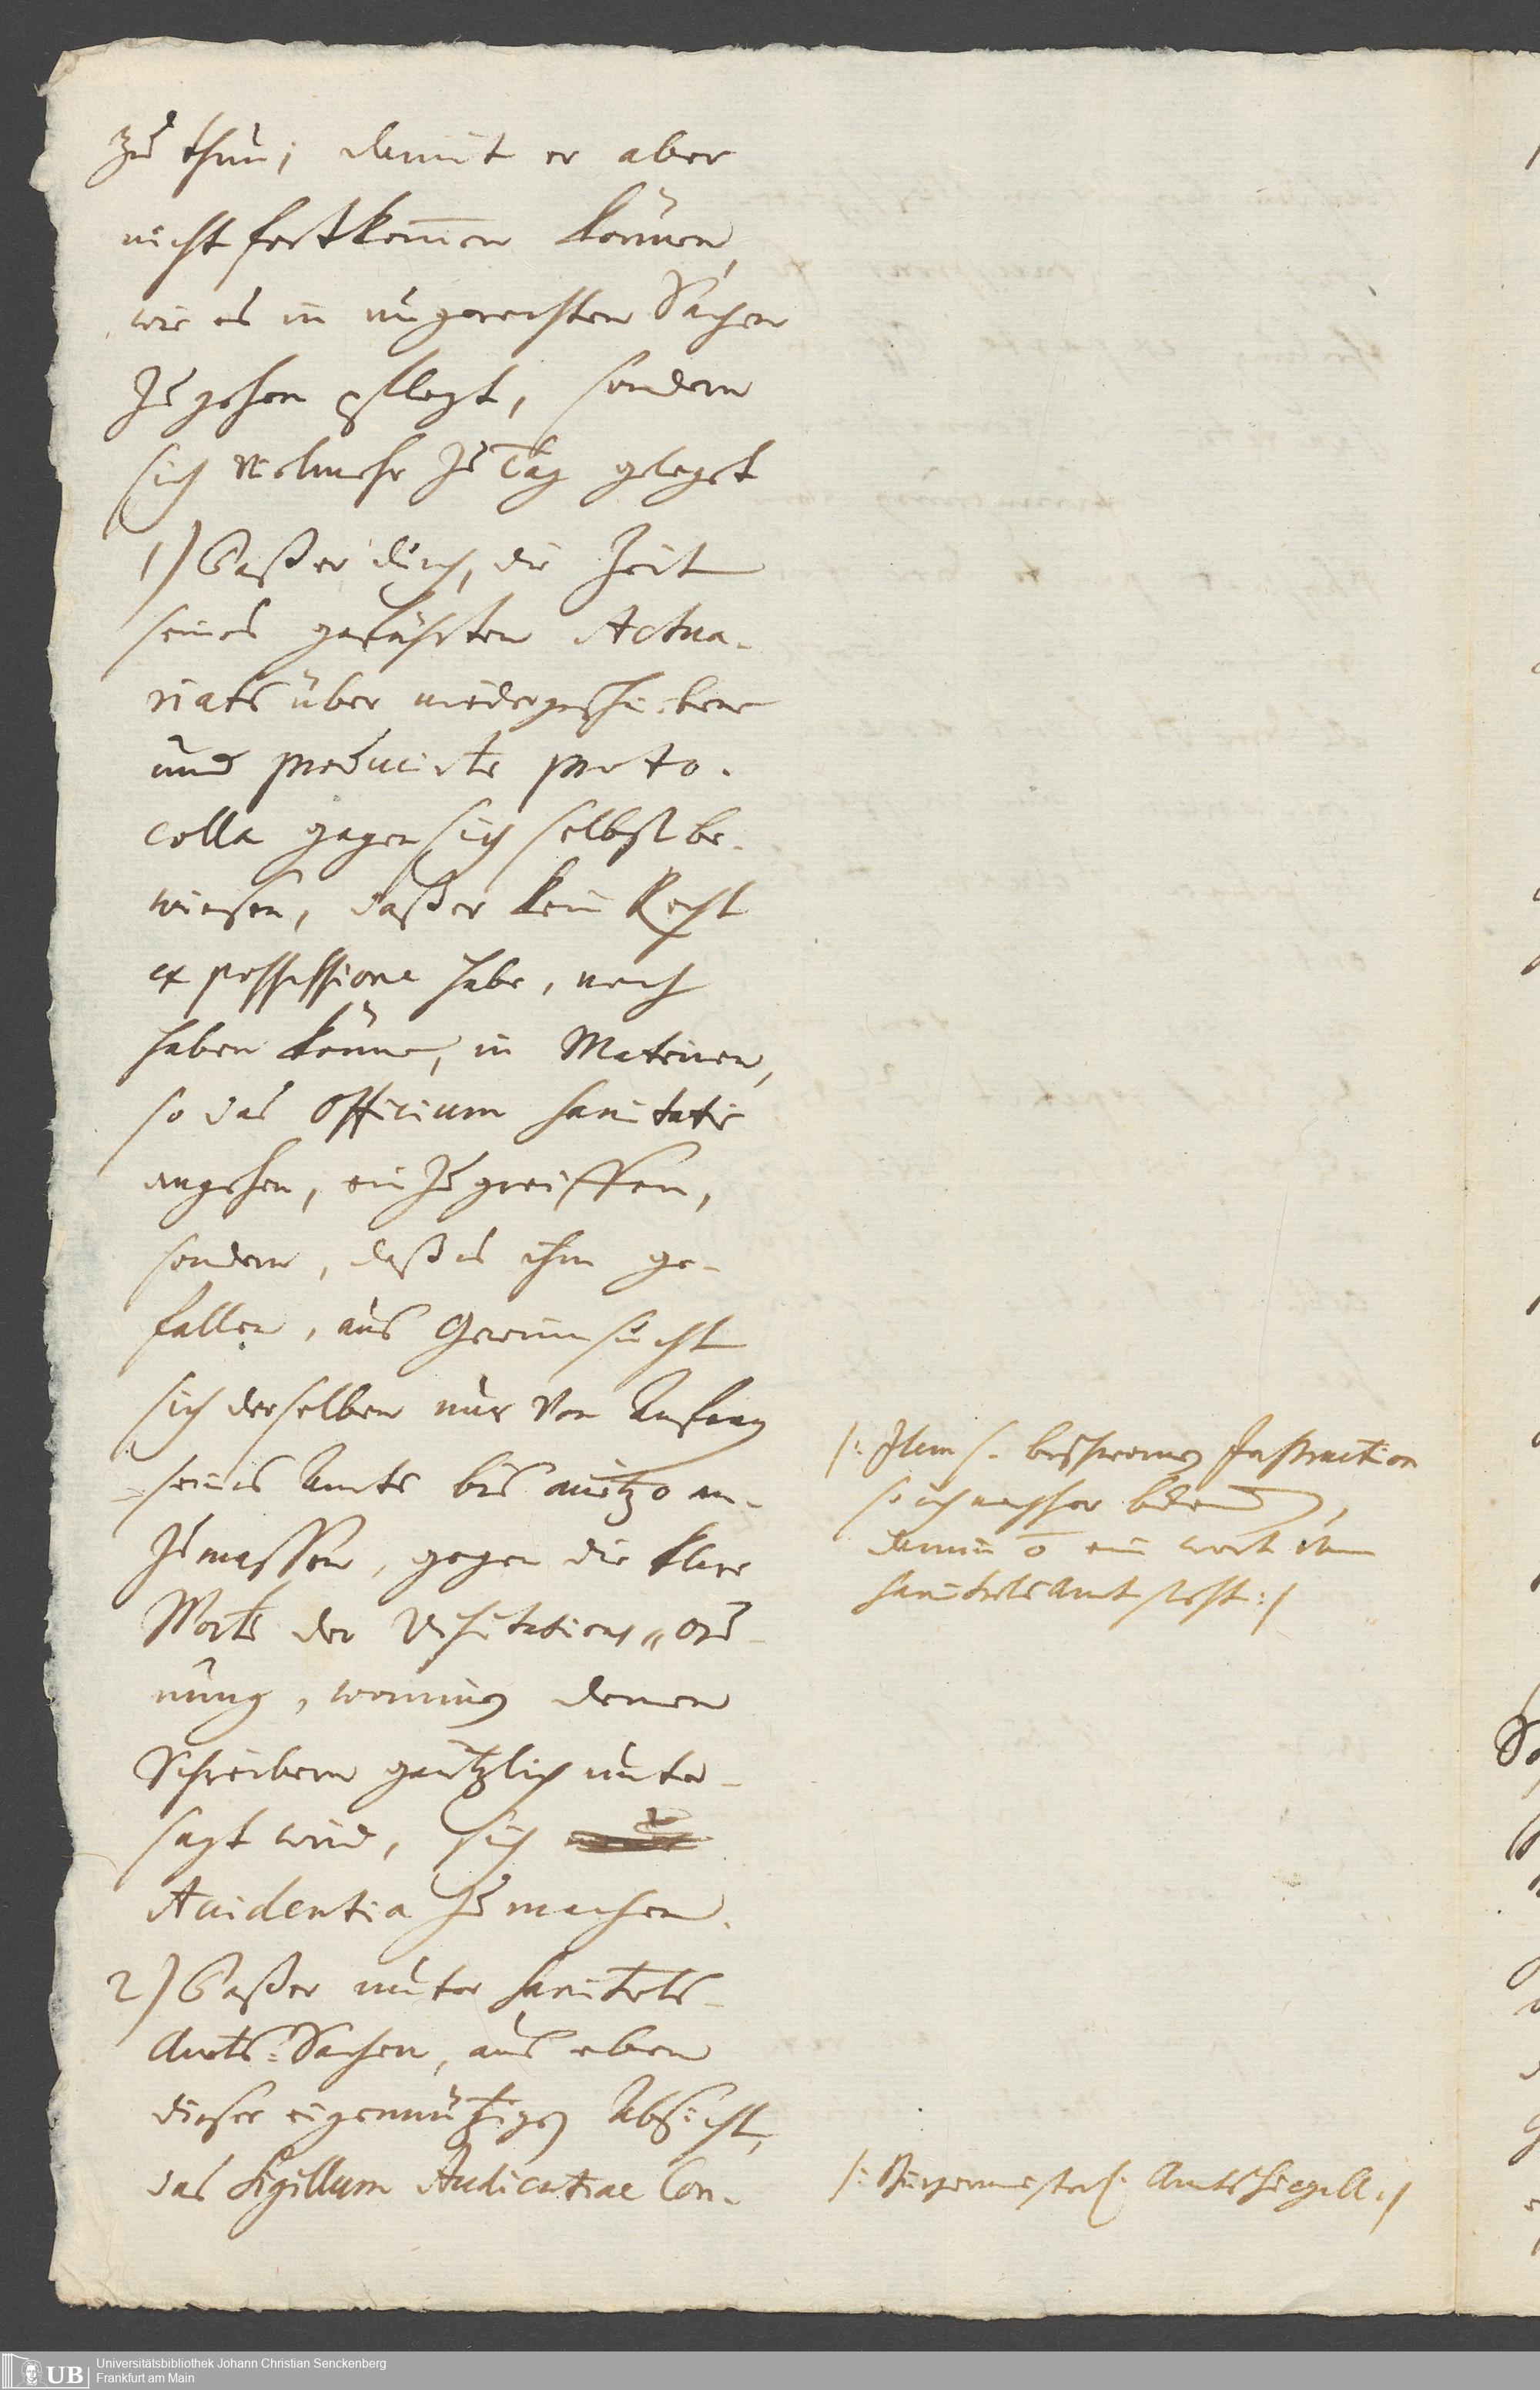 zu thun; damit er aber
nicht fortkom̅en können,
wie es in ungerechten Sachen
zu gehen pflegt, sondern
sich vielmehr zu Tag gelegt
1) Daß er durch, die Zeit
seines geführten Actua-
riats über niedergeschriebene
und producirte proto-
colla gegen sich selbst be-
wiesen, daß er kein Recht
ex possessione habe, noch
haben könne, in Materien,
so das Officium Sanitatis
angehen, einzugreiffen,
sondern, daß es ihm ge-
fallen, aus Gewinnsucht
sich derselben nur von Anfang
seines Amts bis anitzo an-
zumassen, gegen die klare
Worte der Visitations-Ord-
nung, worinnen denen
Schreibern gäntzlich unter-
sagt wird, sich
Accidentia zu machen.
2) Daß er unter Sanitets-
Amts-Sachen, aus eben
dieser eigennützigen Absicht,
das Sigillum Audientiae Con-
/: Item s. Instruction
so ich nachher
darinn ein wort vom
Sanitetsamt steht :/
/: Burgermeisterl: Amts Siegill :/
Universitätsbibliothek Johann Christian Senckenberg
Frankfurt am Main
UB